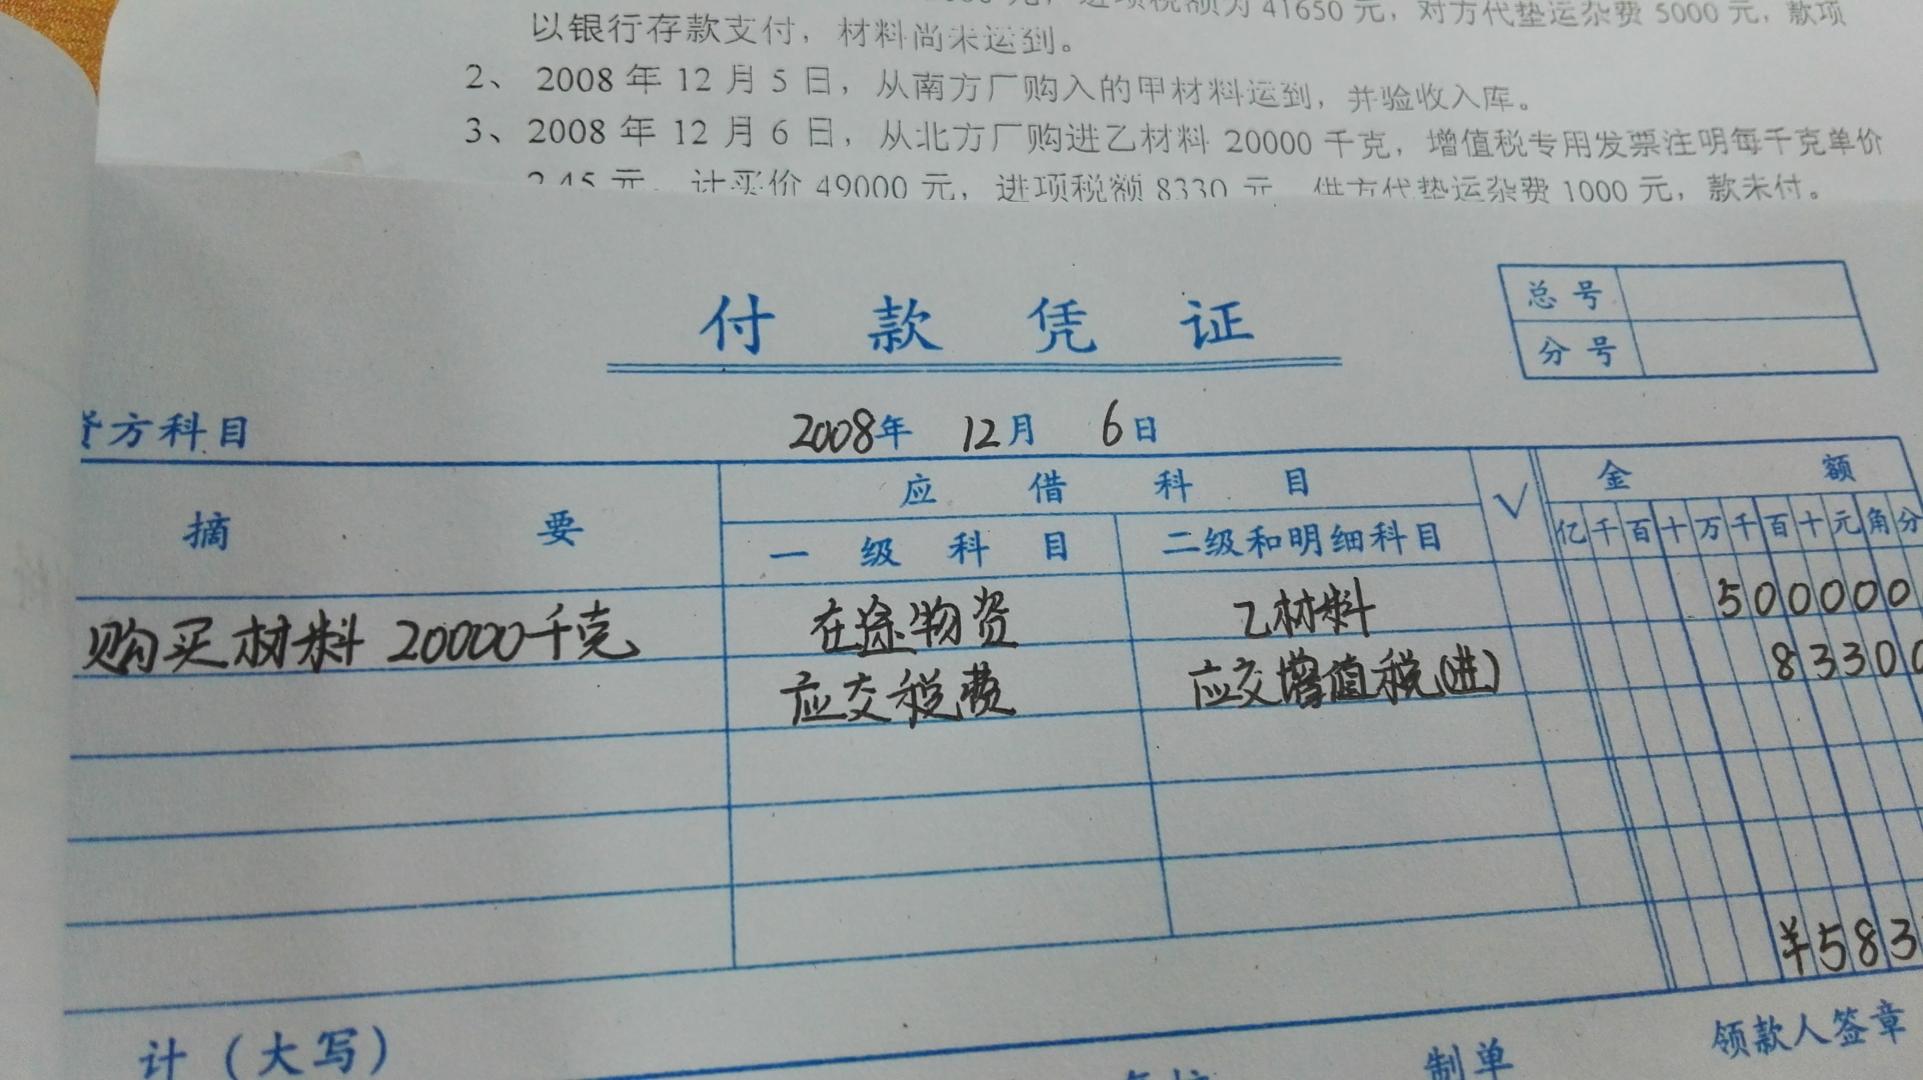 元，进项税额为 41650 元，对方代垫运杂费 5000 元，款项
以银行存款支付，材料尚未运到。
2、 2008 年 12 月 5 日，从南方厂购入的甲材料运到，并验收入库。
3、2008 年 12 月 6 日，从北方厂购进乙材料 20000 千克，增值税专用发票注明每千克单价
2.45 元，计买价 49000 元，进项税额 8330 元，供方代垫运杂费 1000 元，款未付。
付款凭证
总号
分号
贷方科目 2008年 12月 6日
摘要 应借科目 √ 金额
一级科目 二级和明细科目 亿千百十万千百十元角分
购买材料 20000千克 在途物资 乙材料 500000
应交税费 应交增值税(进) 83300
¥583
计（大写）
制单 领款人签章